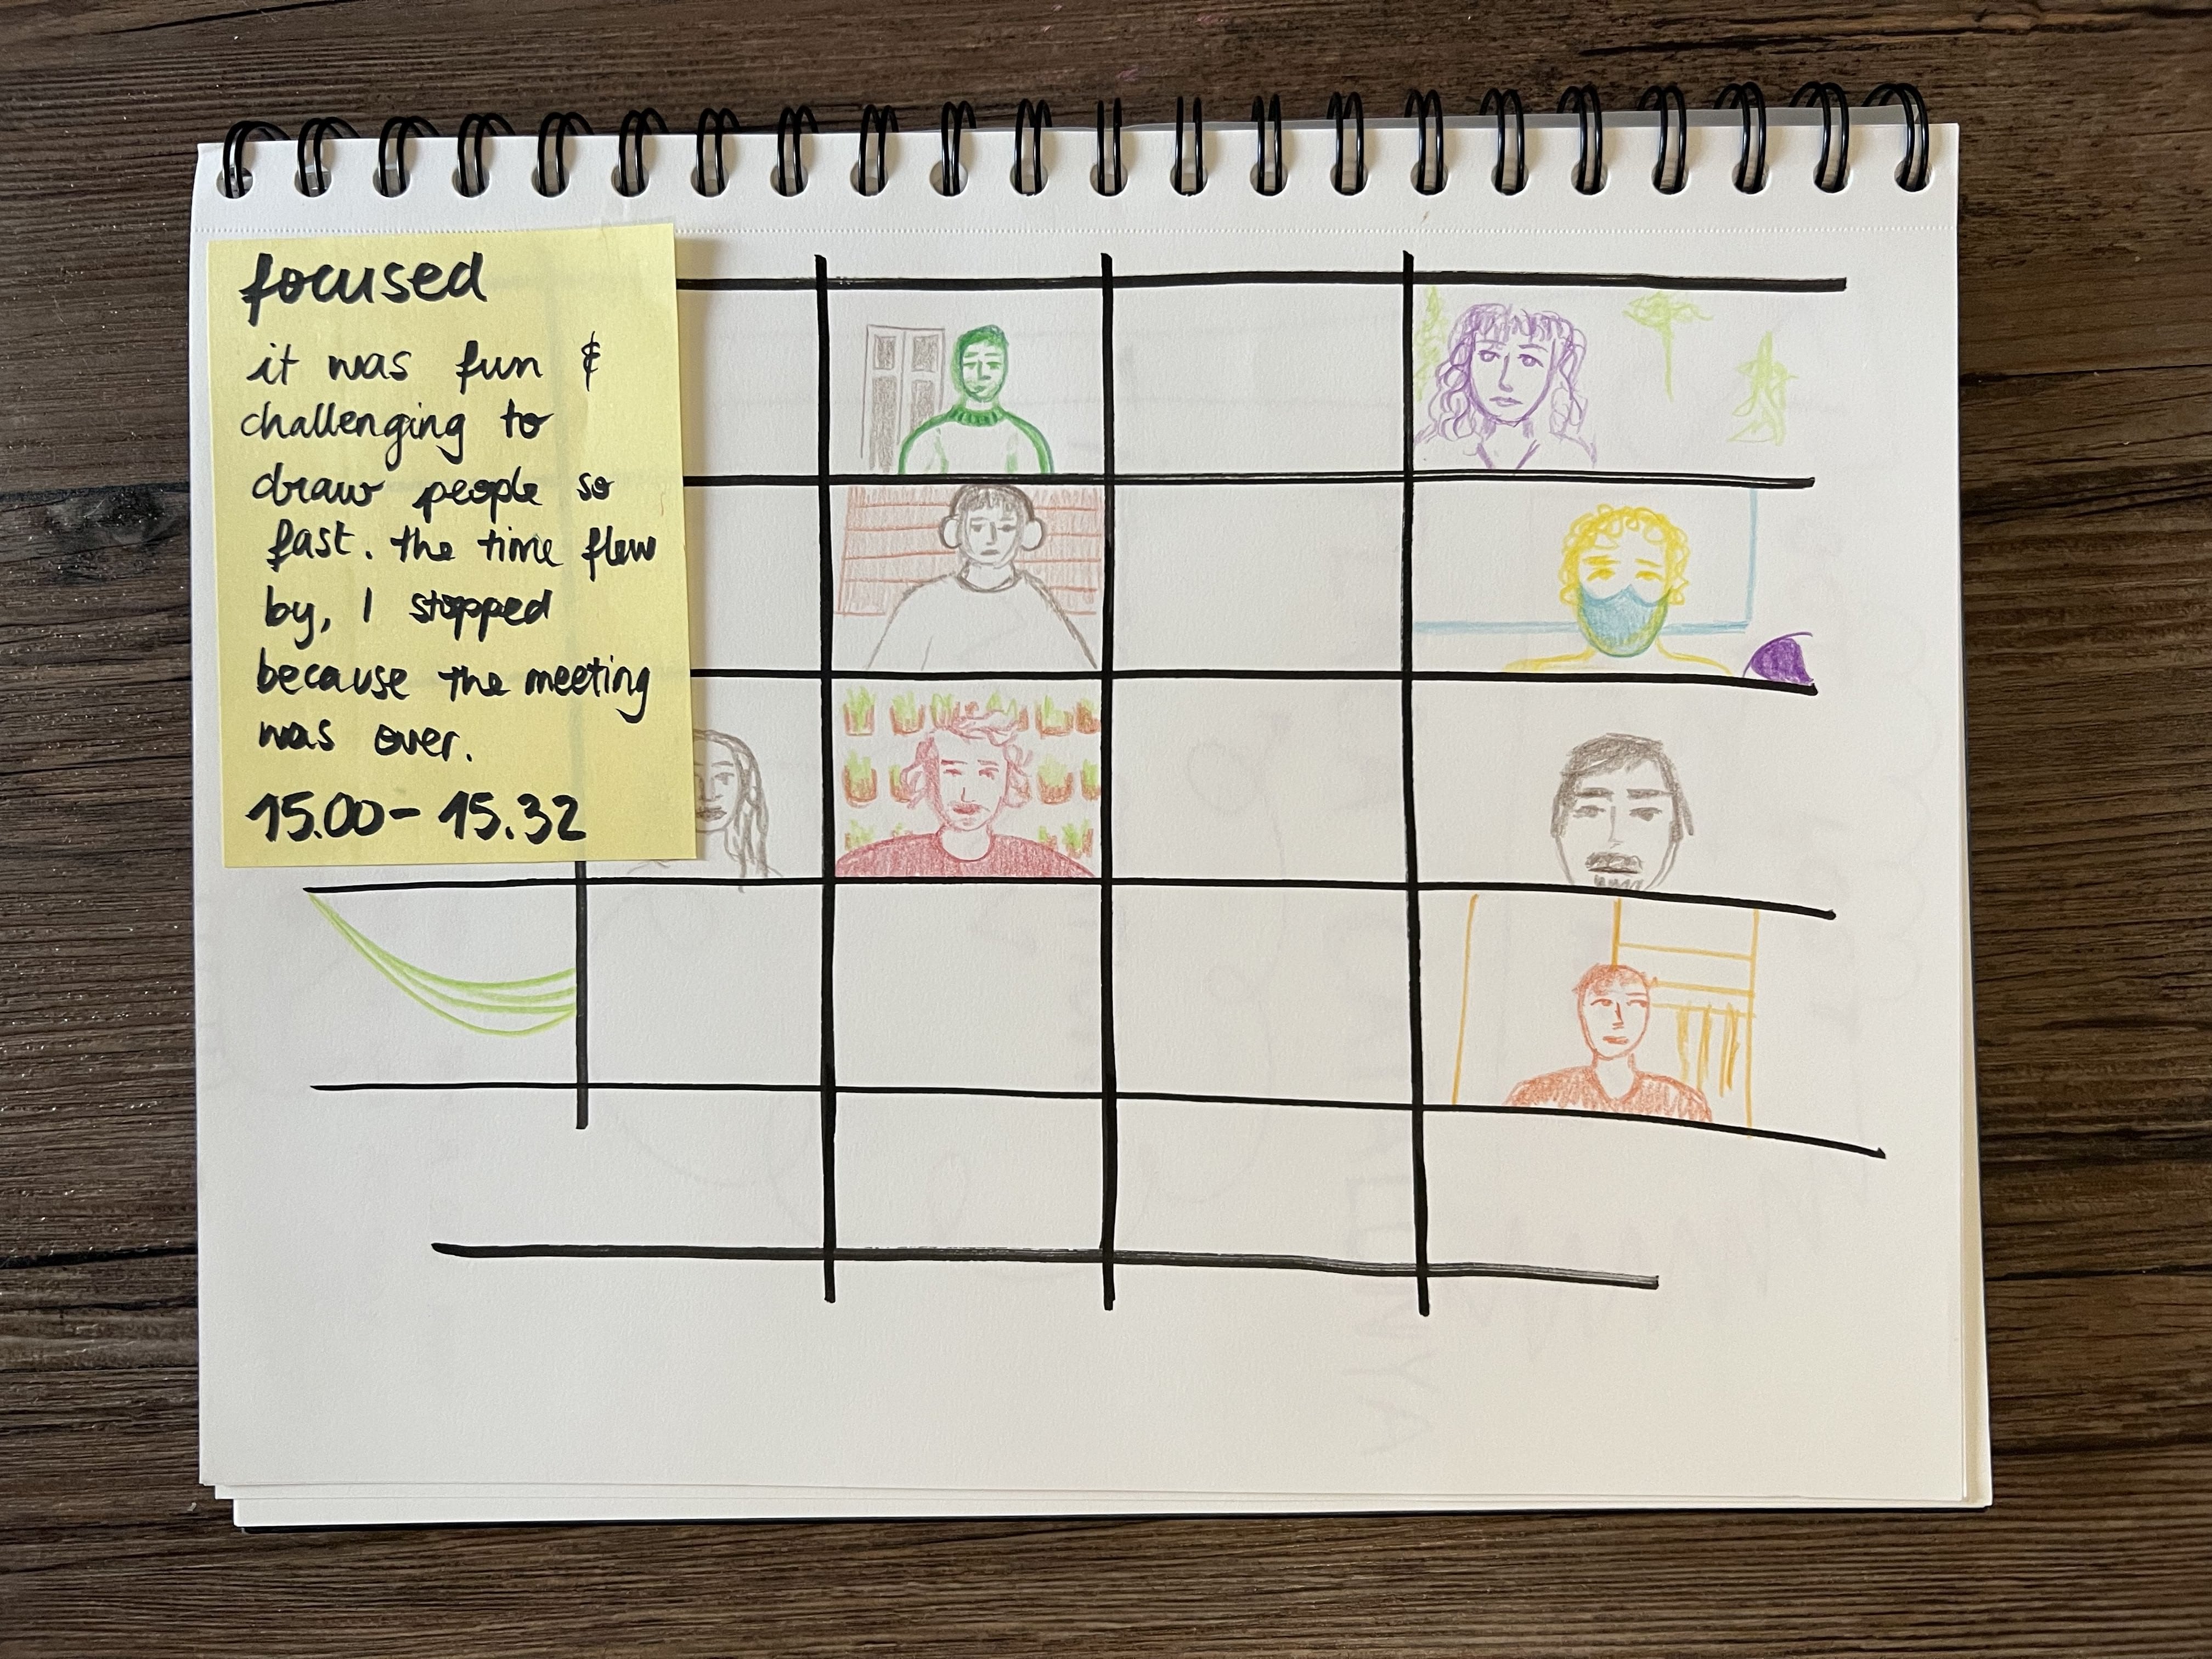 focused
it was fun &
challenging to
draw people so
fast. the time flew
by, I stopped
because the meeting
was over.
15.00 - 15.32